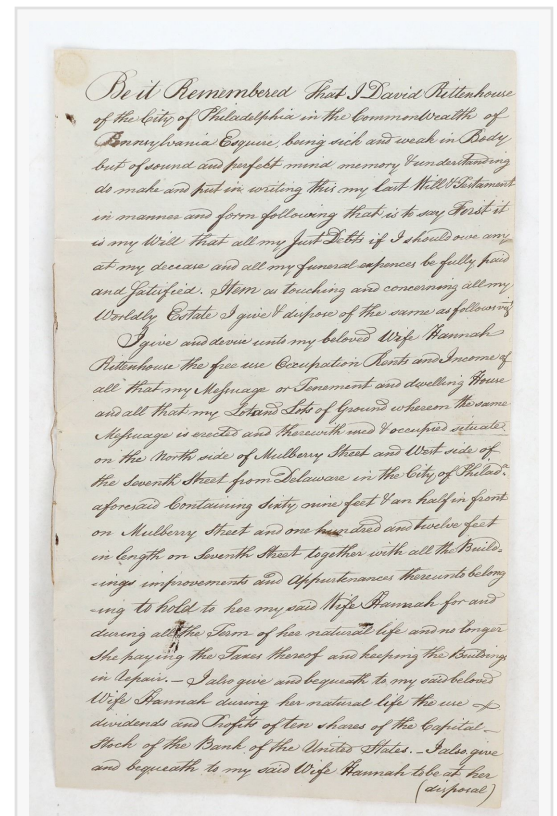 Be it Remembered That I David Rittenhouse
of the City of Philadelphia in the CommonWealth of
Pennsylvania Esquire, being sick and weak in Body
but of sound and perfect mind memory & understanding
do make and put in writing this my last Will & Testament
in manner and form following that is to say First it
is my Will that all my Just Debts if I should owe any
at my decease and all my funeral expences be fully paid
and Satisfied. Item as touching and concerning all my
Worldly Estate I give & dispose of the same as follows viz
I give and devise unto my beloved Wife Hannah
Rittenhouse the free use Occupation Rents and Income of
all that my Messuage or Tenement and dwelling House
and all that my Lot and Lots of Ground whereon the same
Messuage is erected and therewith used & occupied situate
on the North side of Mulberry Street and West side of
the Seventh Street from Delaware in the City of Philada.
aforesaid Containing Sixty nine feet & an half in front
on Mulberry Street and one hundred and twelve feet
in length on Seventh Street together with all the Build-
-ings improvements and Appurtenances thereunto belong
-ing to hold to her my said Wife Hannah for and
during all the Term of her natural life and no longer
She paying the Taxes thereof and keeping the Buildings
in repair. — I also give and bequeath to my said beloved
Wife Hannah during her natural life the use &
dividends and Profits of ten shares of the Capital —
Stock of the Bank of the United States. — I also give
and bequeath to my said Wife Hannah to be at her
(disposal)